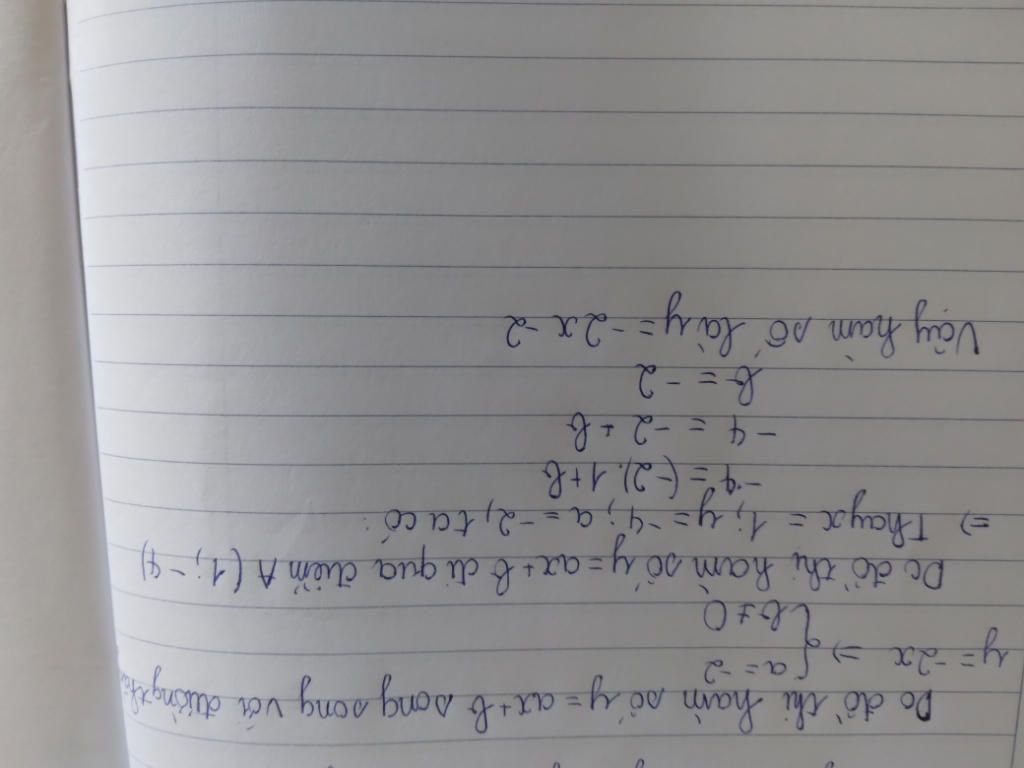 Do đồ thị hàm số y = ax + b song song với đường thẳng
y = -2x => { a = -2
b ≠ 0
Do đồ thị hàm số y = ax + b đi qua điểm A (1; -4)
=> Thay x = 1; y = -4; a = -2, ta có:
-4 = (-2).1 + b
-4 = -2 + b
b = -2
Vậy hàm số là y = -2x - 2